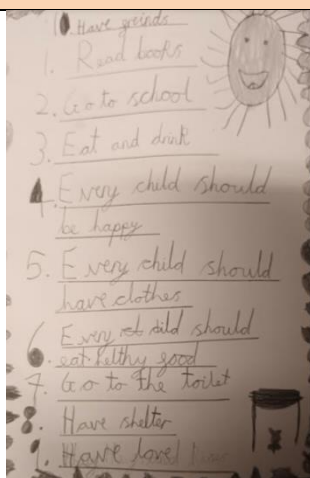 10 Have freinds
1. Read books
2. Go to school
3. Eat and drink
4. Every child should
be happy
5. Every child should
have clothes
6. Every dild should
eat helthy good
7. Go to the toilet
8. Have shelter
9. Have love